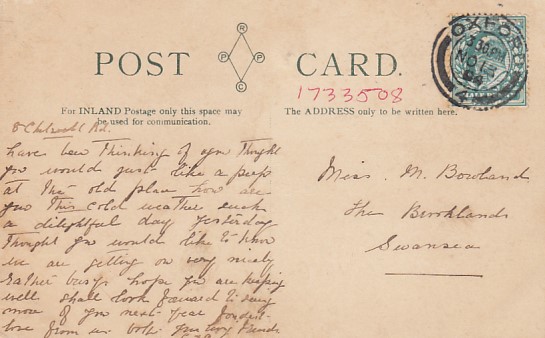 POST CARD.
R
P P
C
For INLAND Postage only this space may
be used for communication.
The ADDRESS only to be written here.
1733508
OXFORD
NO 1
04
8 Rd.
have been thinking of you Thought
you would just like a peep
at the old place how are
you this cold weather such
a delightful day yesterday
Thought you would like to know
we are getting on very nicely
rather busy hope you are keeping
well shall look forward to seeing
more of you next year fondest
love from us both your loving friends
Miss. M. Bowland
The Brooklands
Swansea